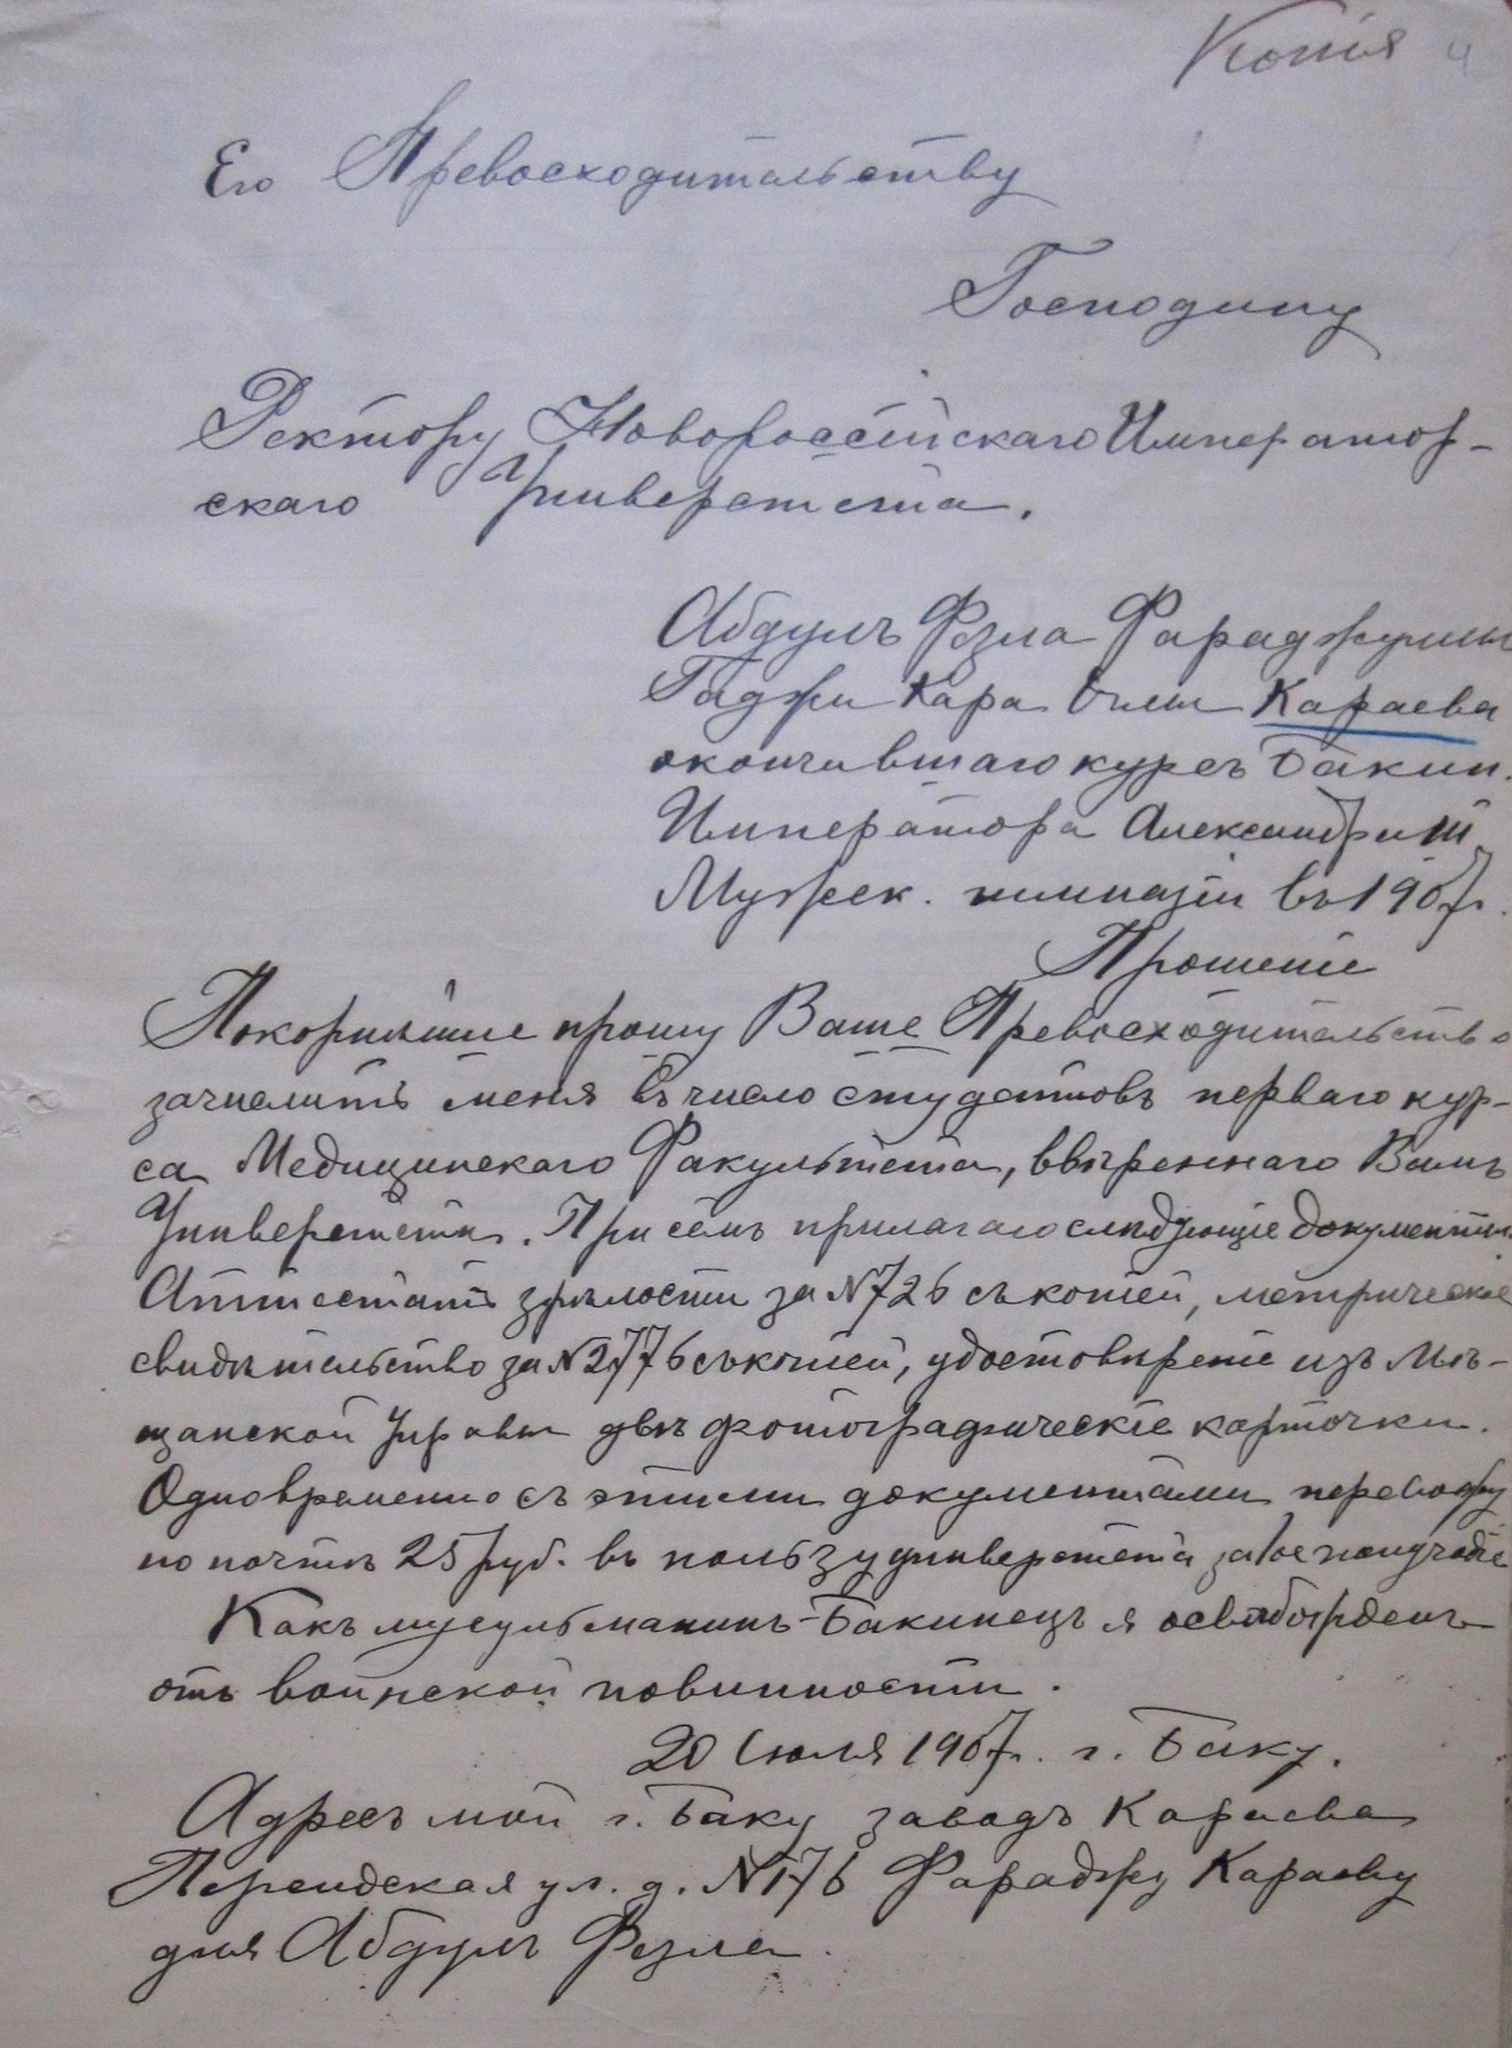 Копія 4
Его Превосходительству
Господину
Ректору Новороссійскаго Император-
скаго Университета.
Абдулъ Фазла Фараджуллы
Гаджи Кара Оглы Караева
окончившаго курсъ Бакин.
Императора Александра III
Мужск. гимназіи въ 1907 г.
Прошеніе
Покорнѣйше прошу Ваше Превосходительство
зачислить меня въ число студентовъ перваго кур-
са Медицинскаго Факультета, ввѣреннаго Вамъ
Университета. При семъ прилагаю слѣдующіе документы.
Аттестатъ зрѣлости за N 726 съ копіей, метрическое
свидѣтельство за N 2776 съ копіей, удостовѣреніе изъ Мѣ-
щанской Управы двѣ фотографическіе карточки.
Одновременно съ этими документами перевожу
по почтѣ 25 руб. въ пользу университета за 1ое полугодіе
Какъ мусульманинъ-Бакинецъ я освобожденъ
отъ воинской повинности.
20 Іюля 1907 г. г. Баку.
Адресъ мой г. Баку заводъ Караева
Персидская ул. д. N 176 Фараджу Караеву
для Абдулъ Фазла.